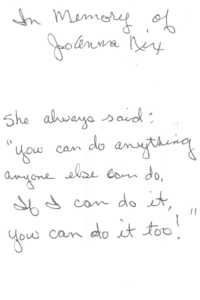 In Memory of
JoAnna Nix
She always said:
"you can do anything
anyone else can do,
If I can do it,
you can do it too!"